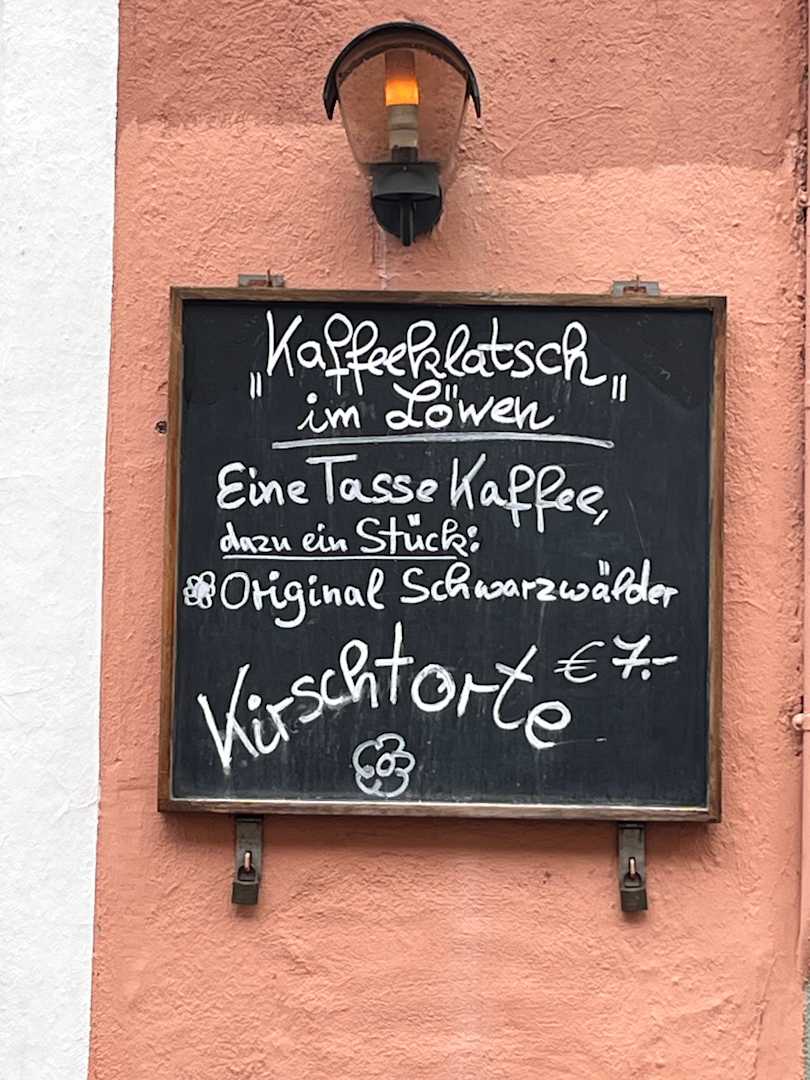 "Kaffeeklatsch"
im Löwen
Eine Tasse Kaffee,
dazu ein Stück:
Original Schwarzwälder
Kirschtorte € 7.-